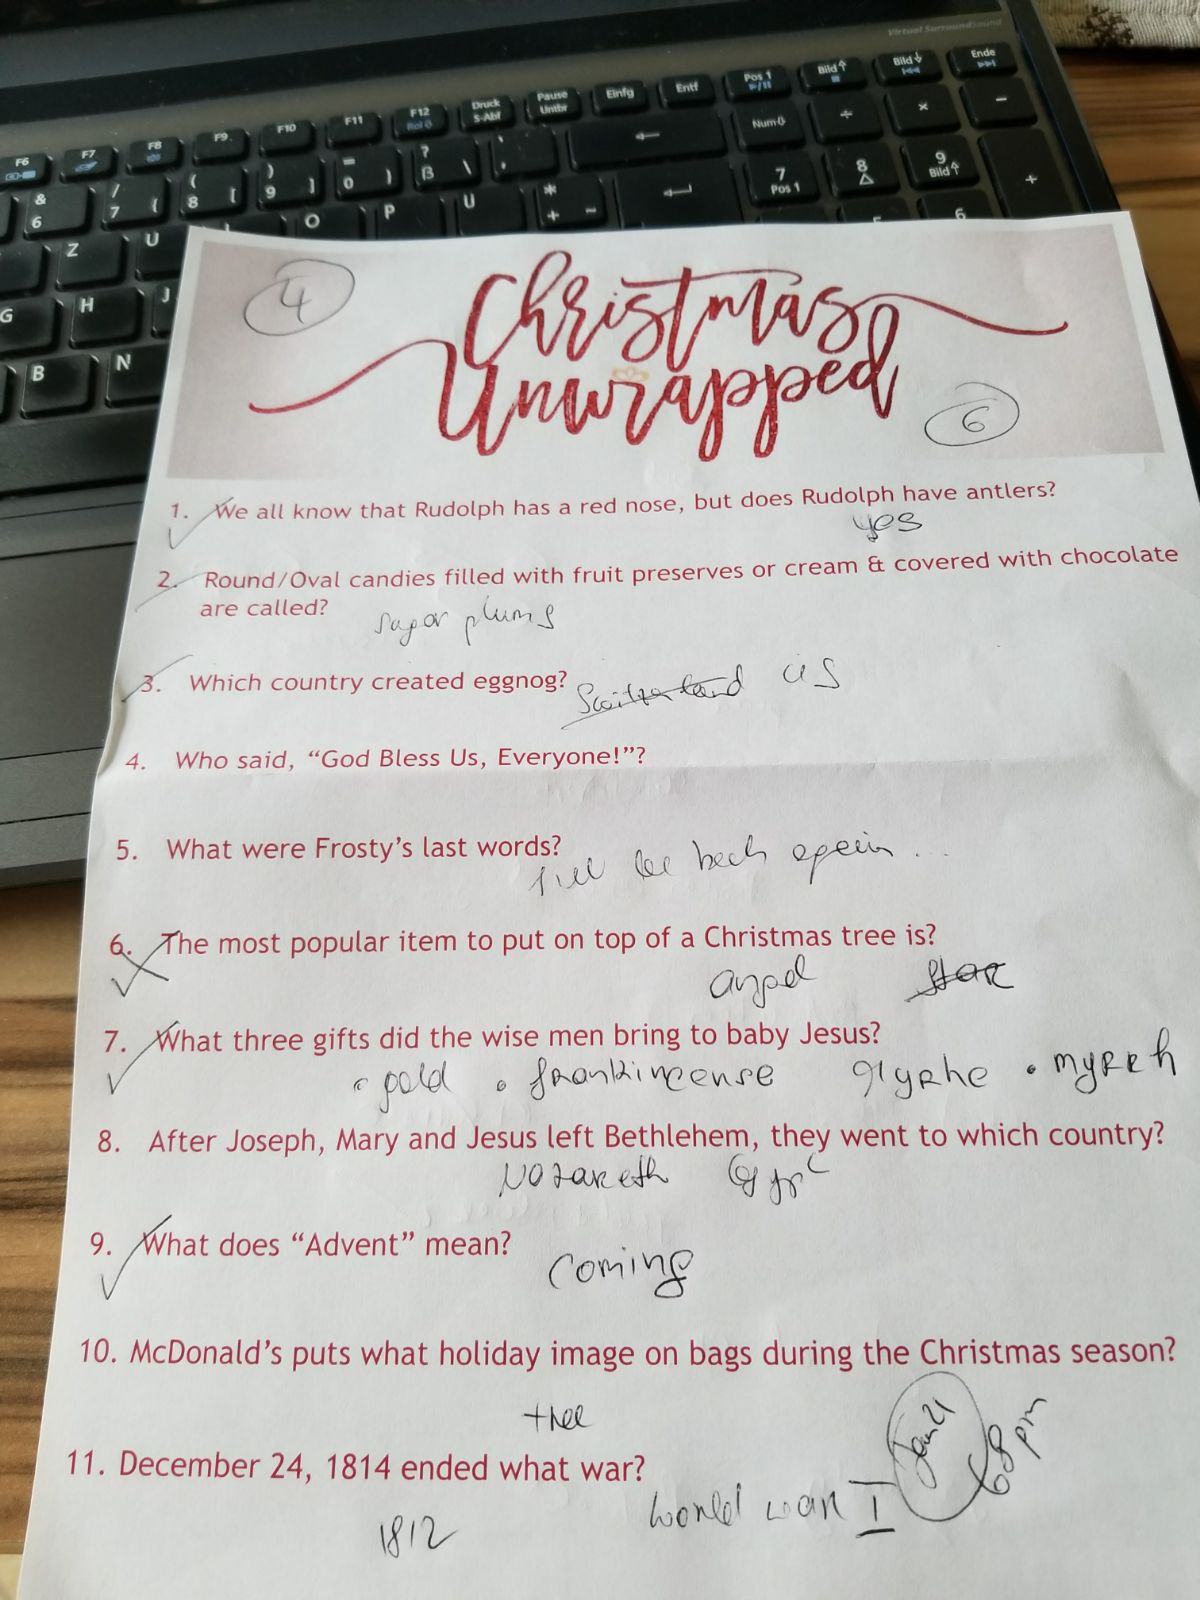 Virtual SurroundSound
F6 F7 F8 F9 F10 F11 F12 Druck Pause Einfg Entf Pos 1 Bild↑ Bild↓ Ende
Rol⇩ S-Abf Untbr
& 6 / 7 { ( 8 [ ) 9 ] = 0 } ? ß \ Num⇩ ÷ × −
Z U O P Ü * + ~ 7 Pos 1 8 9 Bild↑ +
G H J 6
B N
4
Christmas
Unwrapped
6
1. We all know that Rudolph has a red nose, but does Rudolph have antlers?
yes
2. Round/Oval candies filled with fruit preserves or cream & covered with chocolate
are called? sugar plums
3. Which country created eggnog? US
4. Who said, “God Bless Us, Everyone!”?
5. What were Frosty’s last words?
I'll be back again ...
6. The most popular item to put on top of a Christmas tree is?
angel star
7. What three gifts did the wise men bring to baby Jesus?
• gold • frankincense • myrrh
8. After Joseph, Mary and Jesus left Bethlehem, they went to which country?
Nazareth
9. What does “Advent” mean?
coming
10. McDonald’s puts what holiday image on bags during the Christmas season?
tree
11. December 24, 1814 ended what war?
1812 world war I
8pm